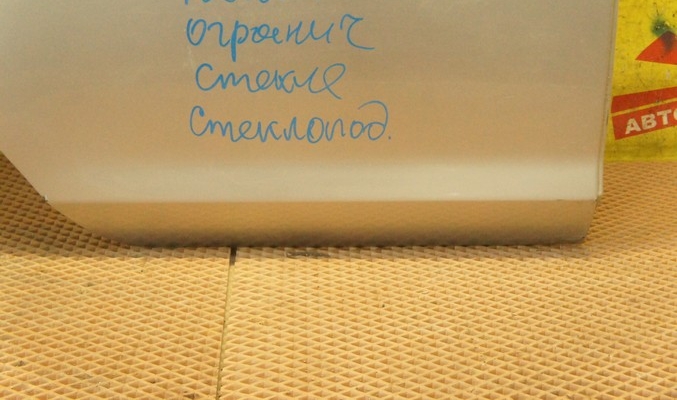 огранич
стекле
Стеклопод.
АВТО